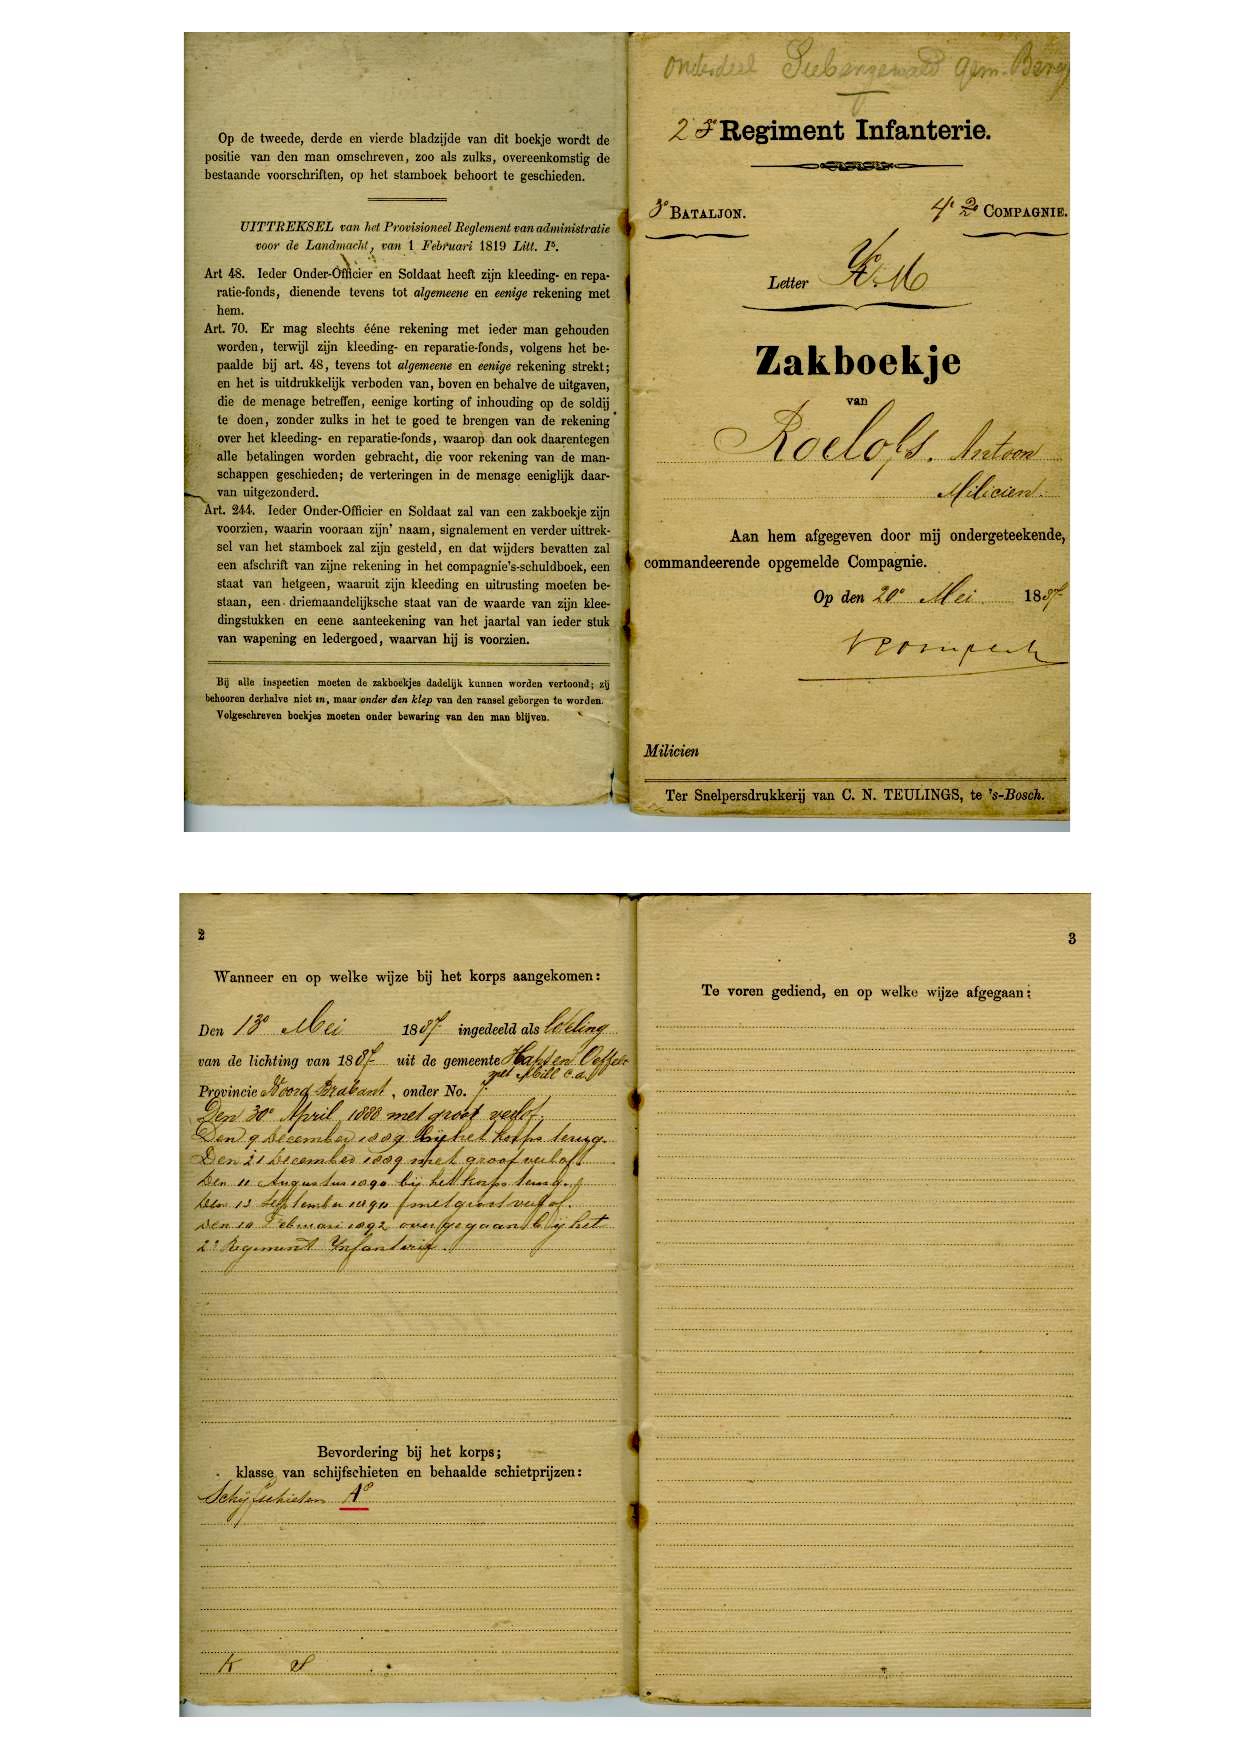 Op de tweede, derde en vierde bladzijde van dit boekje wordt de
positie van den man omschreven, zoo als zulks, overeenkomstig de
bestaande voorschriften, op het stamboek behoort te geschieden.
UITTREKSEL van het Provisioneel Reglement van administratie
voor de Landmacht, van 1 Februari 1819 Litt. Iª.
Art 48. Ieder Onder-Officier en Soldaat heeft zijn kleeding- en repa-
ratie-fonds, dienende tevens tot algemeene en eenige rekening met
hem.
Art. 70. Er mag slechts ééne rekening met ieder man gehouden
worden, terwijl zijn kleeding- en reparatie-fonds, volgens het be-
paalde bij art. 48, tevens tot algemeene en eenige rekening strekt;
en het is uitdrukkelijk verboden van, boven en behalve de uitgaven,
die de menage betreffen, eenige korting of inhouding op de soldij
te doen, zonder zulks in het te goed te brengen van de rekening
over het kleeding- en reparatie-fonds, waarop dan ook daarentegen
alle betalingen worden gebracht, die voor rekening van de man-
schappen geschieden; de verteringen in de menage eeniglijk daar-
van uitgezonderd.
Art. 244. Ieder Onder-Officier en Soldaat zal van een zakboekje zijn
voorzien, waarin vooraan zijn' naam, signalement en verder uittrek-
sel van het stamboek zal zijn gesteld, en dat wijders bevatten zal
een afschrift van zijne rekening in het compagnie's-schuldboek, een
staat van hetgeen, waaruit zijn kleeding en uitrusting moeten be-
staan, een driemaandelijksche staat van de waarde van zijn klee-
dingstukken en eene aanteekening van het jaartal van ieder stuk
van wapening en ledergoed, waarvan hij is voorzien.
Bij alle inspectien moeten de zakboekjes dadelijk kunnen worden vertoond; zij
behooren derhalve niet in, maar onder den klep van den ransel geborgen te worden.
Volgeschreven boekjes moeten onder bewaring van den man blijven.
onderdeel Siebengewald gem. Berg
2 3e Regiment Infanterie.
3e BATALJON. 4e 2e COMPAGNIE.
Letter M
Zakboekje
van
Roelofs. Antoon
Milicien.
Aan hem afgegeven door mij ondergeteekende,
commandeerende opgemelde Compagnie.
Op den 20e Mei 1887
Milicien
Ter Snelpersdrukkerij van C. N. TEULINGS, te 's-Bosch.
2
Wanneer en op welke wijze bij het korps aangekomen:
Den 13e Mei 1887 ingedeeld als loteling
van de lichting van 1887 uit de gemeente Hapsen Oeffelt
met Mill c.a.
Provincie Noord Brabant, onder No. 7.
Den 30e April 1888 met groot verlof.
Den 9 December 1889 bij het korps terug.
Den 21 December 1889 met groot verlof.
Den 11 Augustus 1890 bij het korps terug.
Den 13 September 1890 met groot verlof.
Den 10 Februari 1892 overgegaan bij het
2e Regiment Infanterie.
Bevordering bij het korps;
klasse van schijfschieten en behaalde schietprijzen:
Schijfschieten Ae
K S
3
Te voren gediend, en op welke wijze afgegaan: